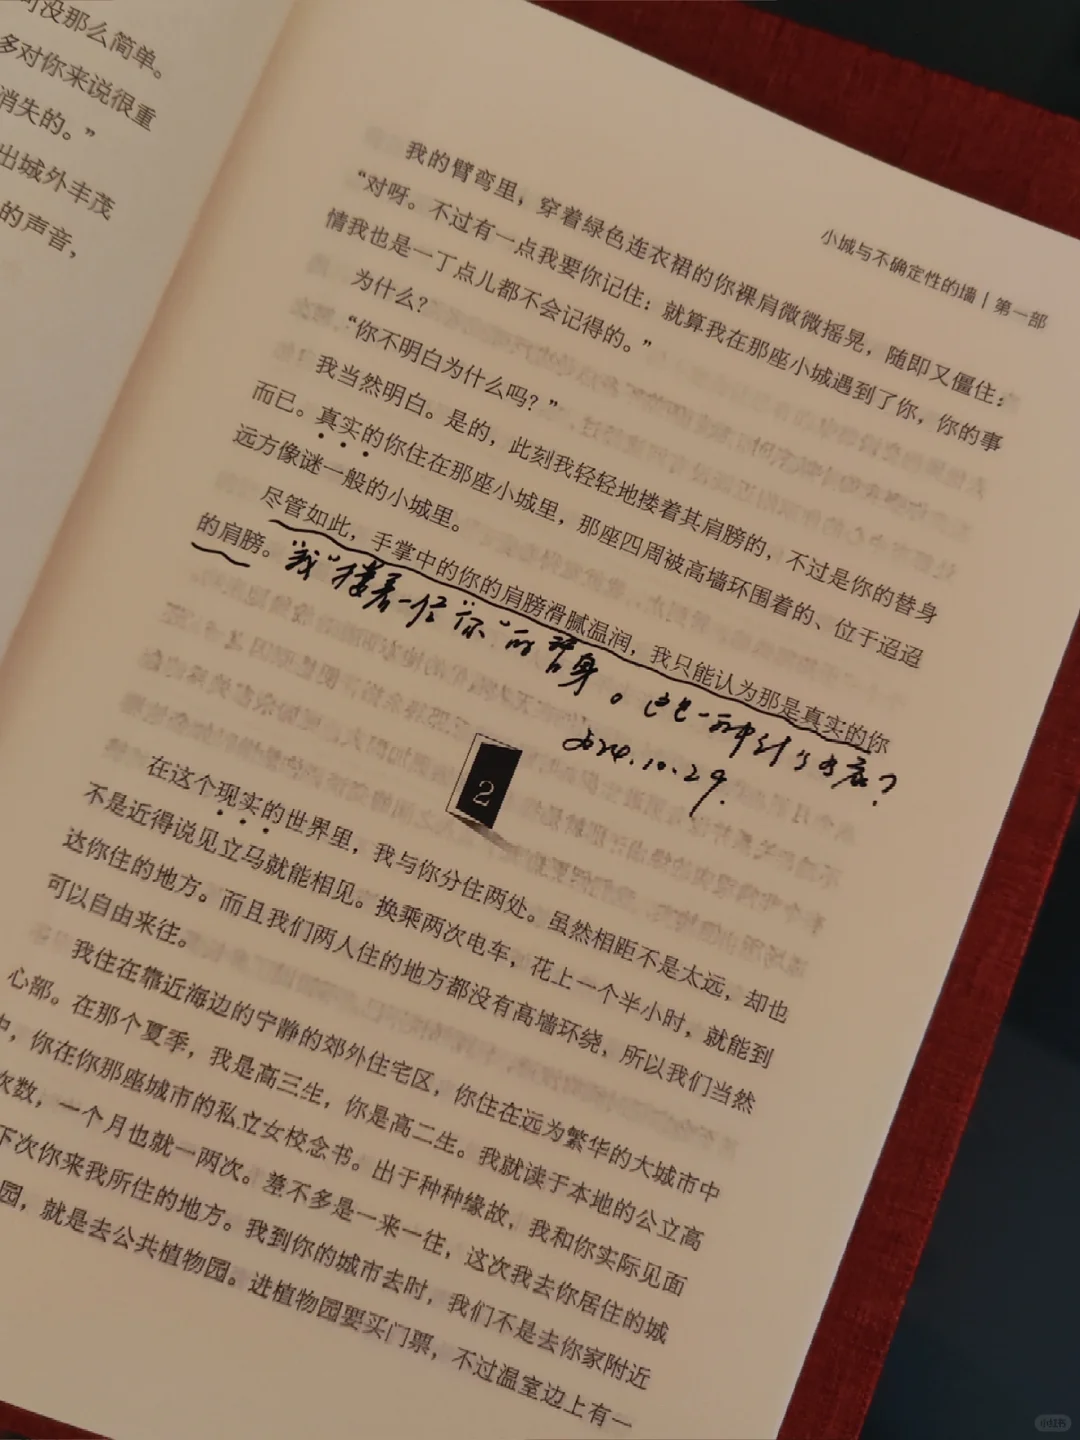 可没那么简单。
多对你来说很重
消失的。”
出城外丰茂
的声音，
小城与不确定性的墙｜第一部
我的臂弯里，穿着绿色连衣裙的你裸肩微微摇晃，随即又僵住：
“对呀。不过有一点我要你记住：就算我在那座小城遇到了你，你的事
情我也是一丁点儿都不会记得的。”
为什么？
“你不明白为什么吗？”
我当然明白。是的，此刻我轻轻地搂着其肩膀的，不过是你的替身
而已。真实的你住在那座小城里，那座四周被高墙环围着的、位于迢迢
远方像谜一般的小城里。
尽管如此，手掌中的你的肩膀滑腻温润，我只能认为那是真实的你
的肩膀。
“我”搂着一个“你”的替身。这是一种
2024.10.29.
2
在这个现实的世界里，我与你分住两处。虽然相距不是太远，却也
不是近得说见立马就能相见。换乘两次电车，花上一个半小时，就能到
达你住的地方。而且我们两人住的地方都没有高墙环绕，所以我们当然
可以自由来往。
我住在靠近海边的宁静的郊外住宅区，你住在远为繁华的大城市中
心部。在那个夏季，我是高三生，你是高二生。我就读于本地的公立高
中，你在你那座城市的私立女校念书。出于种种缘故，我和你实际见面
次数，一个月也就一两次。差不多是一来一往，这次我去你居住的城
下次你来我所住的地方。我到你的城市去时，我们不是去你家附近
园，就是去公共植物园。进植物园要买门票，不过温室边上有一